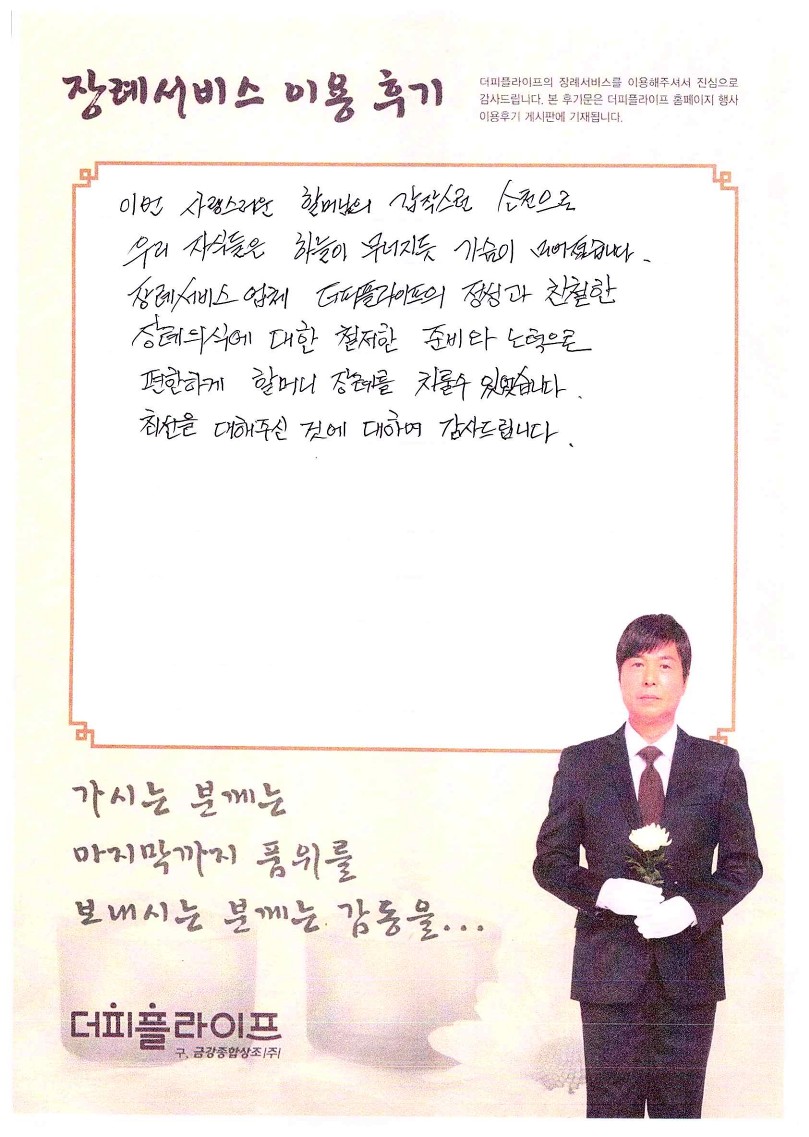 장례서비스 이용 후기
더피플라이프의 장례서비스를 이용해주셔서 진심으로
감사드립니다. 본 후기문은 더피플라이프 홈페이지 행사
이용후기 게시판에 기재됩니다.
이번 사랑스러운 할머님의 갑작스런 소천으로
우리 자식들은 하늘이 무너지듯 가슴이 미어졌습니다.
장례서비스 업체 더피플라이프의 정성과 친절한
장례의식에 대한 철저한 준비와 노력으로
편한하게 할머니 장례를 치룰수 있었습니다.
최선을 대해주신 것에 대하여 감사드립니다.
가시는 분께는
마지막까지 품위를
보내시는 분께는 감동을...
더피플라이프
구. 금강종합상조(주)